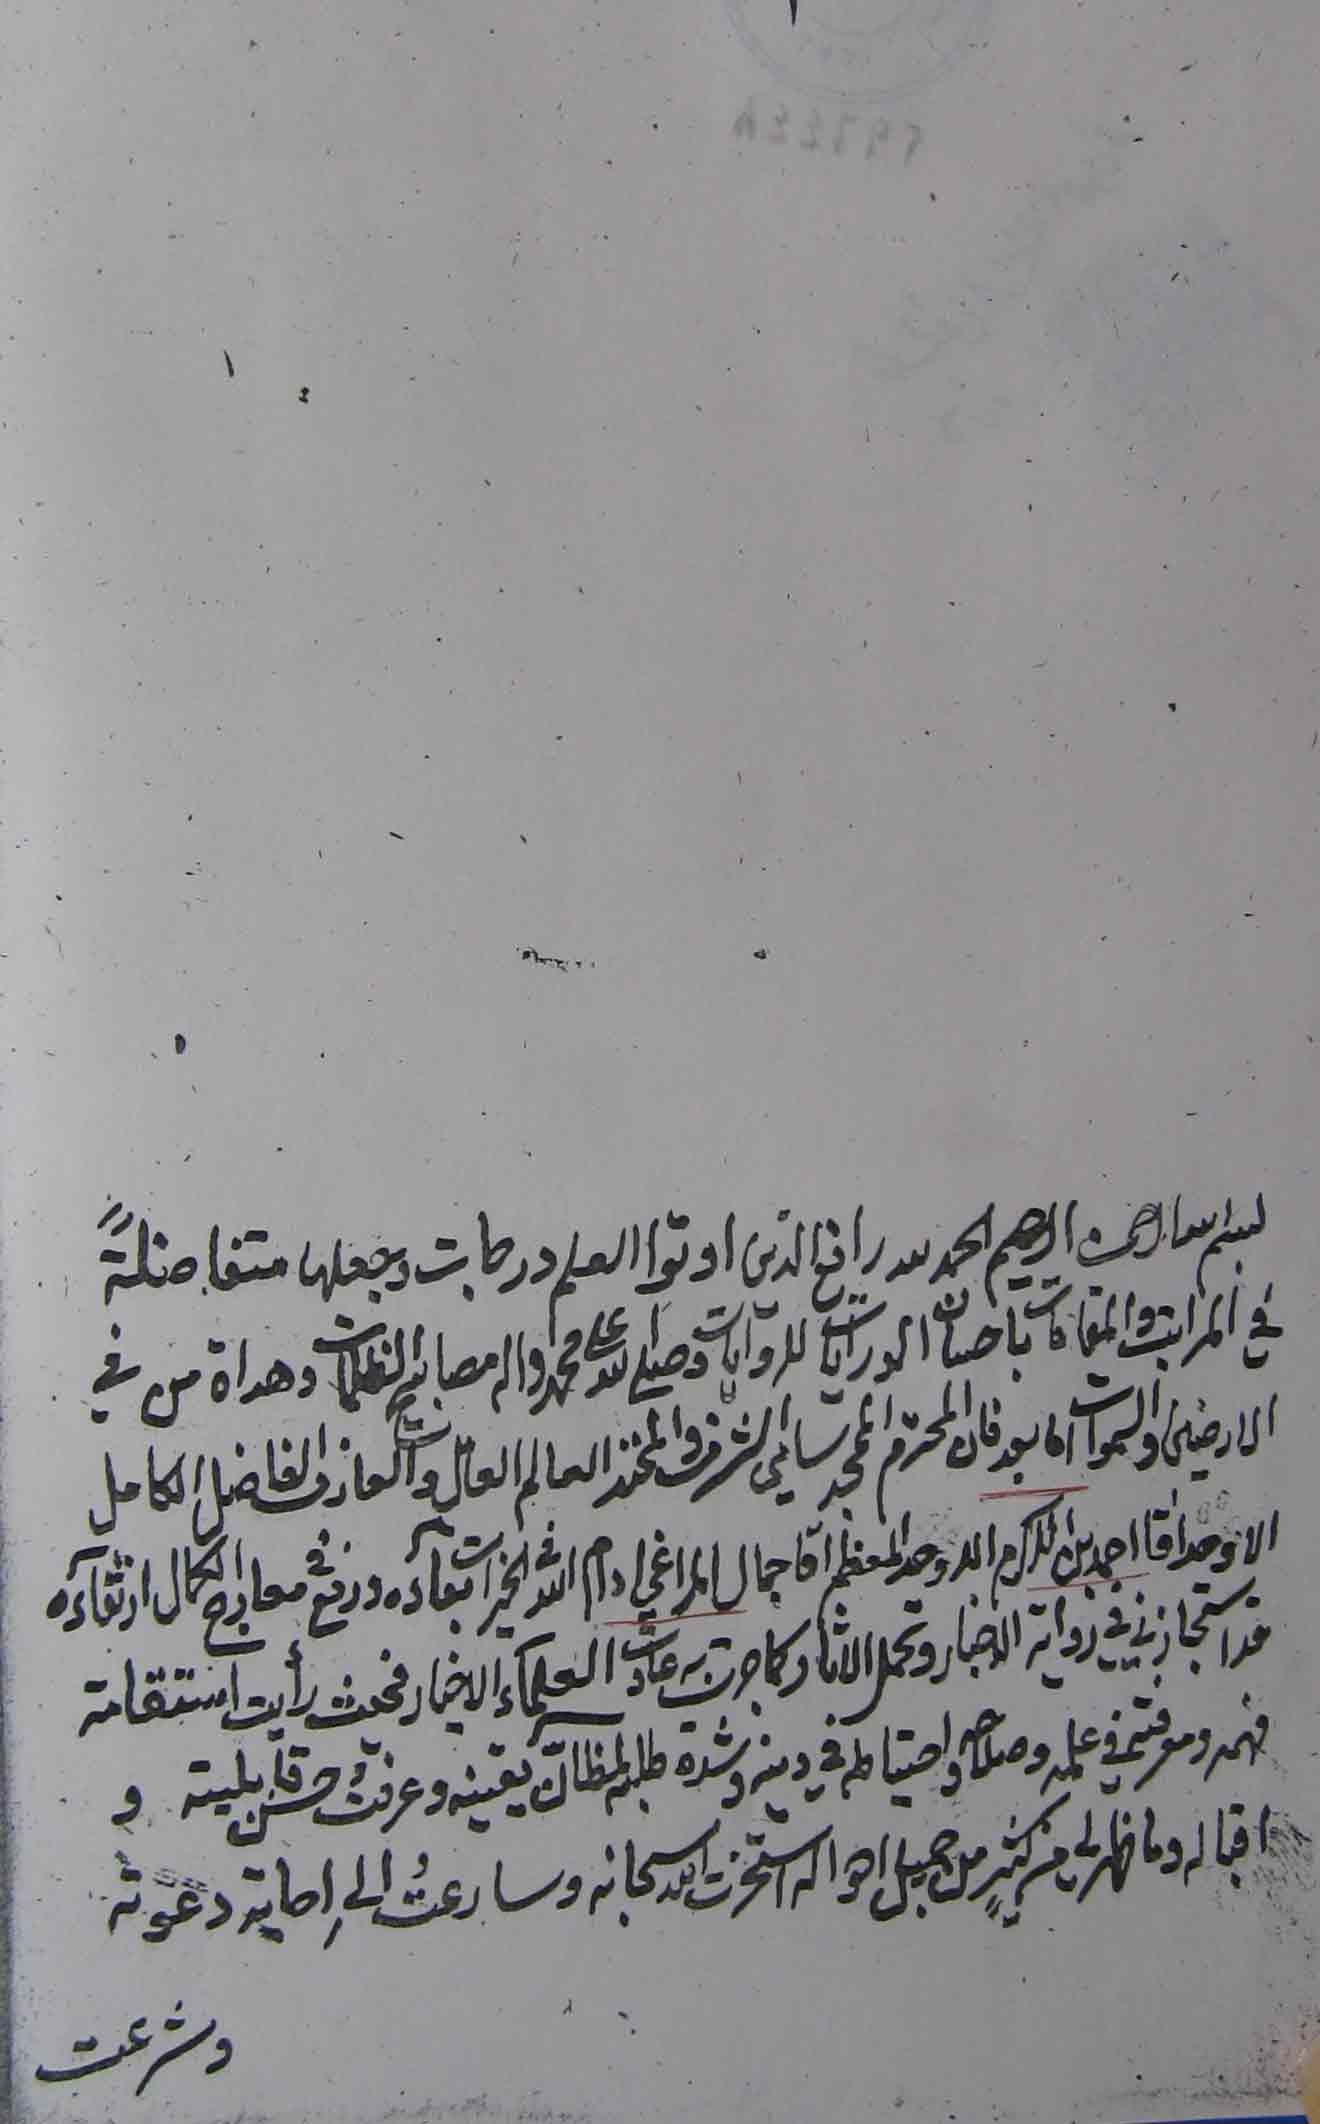 بسم الله الرحمن الرحيم الحمد لله رافع الذين اوتوا العلم درجات وجعلها متفاضلةً
في المراتب والمقامات باحسان الدرايات للروايات وصلى الله على محمد واله مصابيح الظلمات وهداة من في
الارضين والسموات اما بعد فان المحترم الممجد الشريف المفتخر العالم العامل والعارف الفاضل الكامل
الاوحد اقا احمد بن الاكرم الاوحد المعظم اقا جمال المراغي ادام الله في الخيرات بقاءه ورفع في معارج الكمال ارتقاءه
قد استجازني في رواية الاخبار وتحمل الاثار كما جرت به عادت العلماء الاخيار فحيث رأيت استقامة
فهمه ومعرفته في علمه وصلاحه واحتياطه في دينه وشدة طلبه لمظانّ يقينه وعرفتُ حسن قابليته و
اقباله وما ظهر لي من كثيرٍ من جميل احواله استخرت الله سبحانه وسارعتُ الى اجابة دعوته
وشرعت